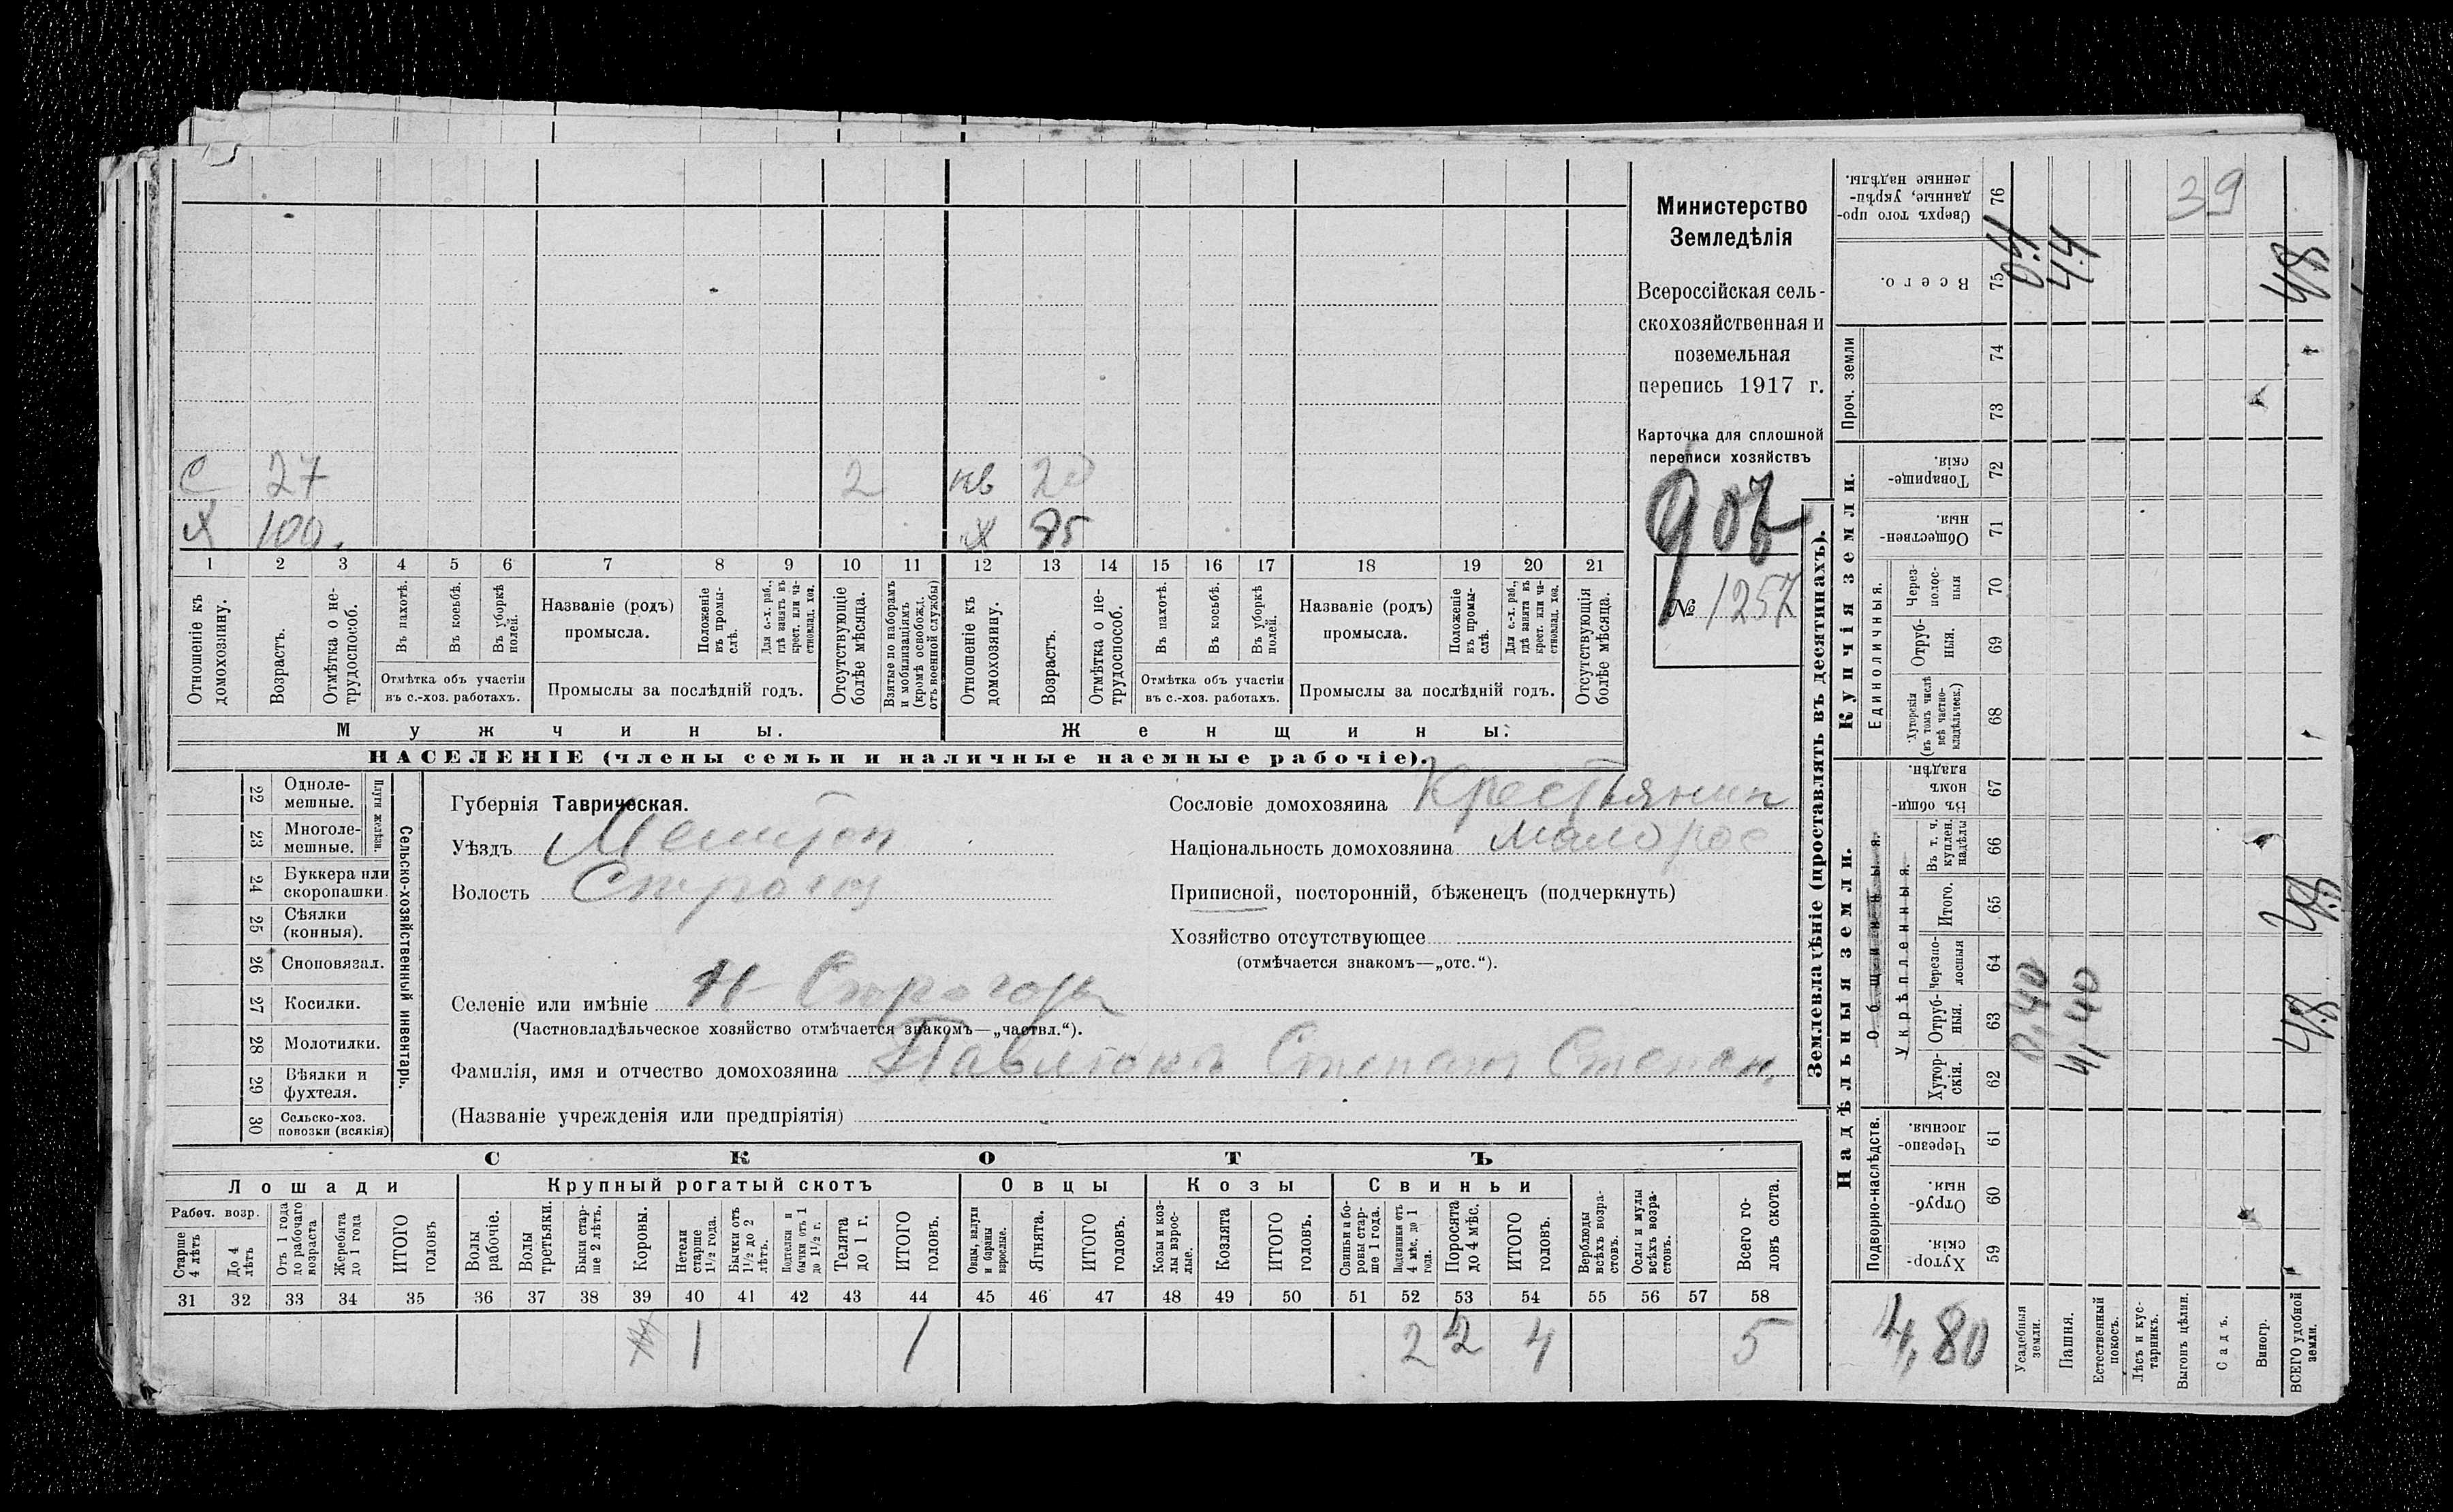 Министерство
Земледѣлія
Всероссійская сель-
скохозяйственная и
поземельная
перепись 1917 г.
Карточка для сплошной
переписи хозяйствъ
907
№ 1257
С 27 2 нв 20
Х 100. Х 75
1 2 3 4 5 6 7 8 9 10 11 12 13 14 15 16 17 18 19 20 21
Отношеніе къ домохозяину.
Возрастъ.
Отмѣтка о не-трудоспособ.
Въ пахотѣ.
Въ косьбѣ.
Въ уборкѣ полей.
Отмѣтка объ участіи
въ с.-хоз. работахъ.
Названіе (родъ)
промысла.
Положеніе въ промы-слѣ.
Для с.-х. раб., гдѣ занятъ въ крест. или ча-стновлад. хоз.
Промыслы за послѣдній годъ.
Отсутствующіе болѣе мѣсяца.
Взятые по наборамъ и мобилизаціямъ (кромѣ освобожд. отъ военной службы)
Отношеніе къ домохозяину.
Возрастъ.
Отмѣтка о не-трудоспособ.
Въ пахотѣ.
Въ косьбѣ.
Въ уборкѣ полей.
Отмѣтка объ участіи
въ с.-хоз. работахъ.
Названіе (родъ)
промысла.
Положеніе въ промы-слѣ.
Для с.-х. раб., гдѣ занята въ крест. или ча-стновлад. хоз.
Промыслы за послѣдній годъ.
Отсутствующія болѣе мѣсяца.
Мужчины. Женщины.
НАСЕЛЕНІЕ (члены семьи и наличные наемные рабочіе).
22 Одноле-
мешные.
23 Многоле-
мешные.
Плуги желѣзн.
24 Буккера или
скоропашки.
25 Сѣялки
(конныя).
26 Сноповязал.
27 Косилки.
28 Молотилки.
29 Вѣялки и
фухтеля.
30 Сельско-хоз.
повозки (всякія)
Сельско-хозяйственный инвентарь.
Губернія Таврическая.
Уѣздъ Мелитоп
Волость
Селеніе или имѣніе Н Строгозы
(Частновладѣльческое хозяйство отмѣчается знакомъ—„частвл.“).
Фамилія, имя и отчество домохозяина Павлюкъ Степанъ Степан.
(Названіе учрежденія или предпріятія)
Сословіе домохозяина Крестьянин
Національность домохозяина малорос
Приписной, посторонній, бѣженецъ (подчеркнуть)
Хозяйство отсутствующее
(отмѣчается знакомъ—„отс.“).
СКОТЪ
Лошади Крупный рогатый скотъ Овцы Козы Свиньи
Рабоч. возр.
Старше 4 лѣтъ
До 4 лѣтъ
Отъ 1 года до рабочаго возраста
Жеребята до 1 года
ИТОГО головъ
Волы рабочіе.
Волы третьяки.
Быки стар-ше 2 лѣтъ.
Коровы.
Нетели старше 1½ года.
Бычки отъ 1½ до 2 лѣтъ.
Подтелки и бычки отъ 1 до 1½ г.
Телята до 1 г.
ИТОГО головъ.
Овцы, валухи и бараны взрослые.
Ягнята.
ИТОГО головъ.
Козы и коз-лы взрос-лые.
Козлята
ИТОГО головъ.
Свиньи и бо-ровы стар-ше 1 года.
Подсвинки отъ 4 мѣс. до 1 года.
Поросята до 4 мѣс.
ИТОГО головъ.
Верблюды всѣхъ возра-стовъ.
Ослы и мулы всѣхъ возра-стовъ.
Всего го-ловъ скота.
31 32 33 34 35 36 37 38 39 40 41 42 43 44 45 46 47 48 49 50 51 52 53 54 55 56 57 58
1 1 2 2 4 5
Землевладѣніе (проставлять въ десятинахъ).
Надѣльныя земли.
Купчія земли.
Проч. земли
Подворно-наслѣдств.
Общинныя.
Укрѣпленныя.
Единоличныя.
Хутор-скія. 59
Отруб-ныя. 60
Черезпо-лосныя. 61
Хутор-скія. 62
Отруб-ныя. 63
Черезпо-лосныя 64
Итого. 65
Въ т. ч. куплен. надѣлы 66
Въ общи-номъ владѣн. 67
Хуторскія (въ томъ числѣ всѣ частно-владѣльческ.) 68
Отруб-ныя. 69
Через-полос-ныя 70
Обществен-ныя. 71
Товарище-скія. 72
73
74
Всего. 75
Сверхъ того про-данные, укрѣп-ленные надѣлы. 76
4,80
Усадебныя земли. 0,40 0,4
Пашня. 4,40 4.4
Естественный покосъ.
Лѣсъ и кус-тарникъ.
Выгонъ цѣлин.
Садъ.
Виногр.
ВСЕГО удобной земли. 4.8 4.8
39